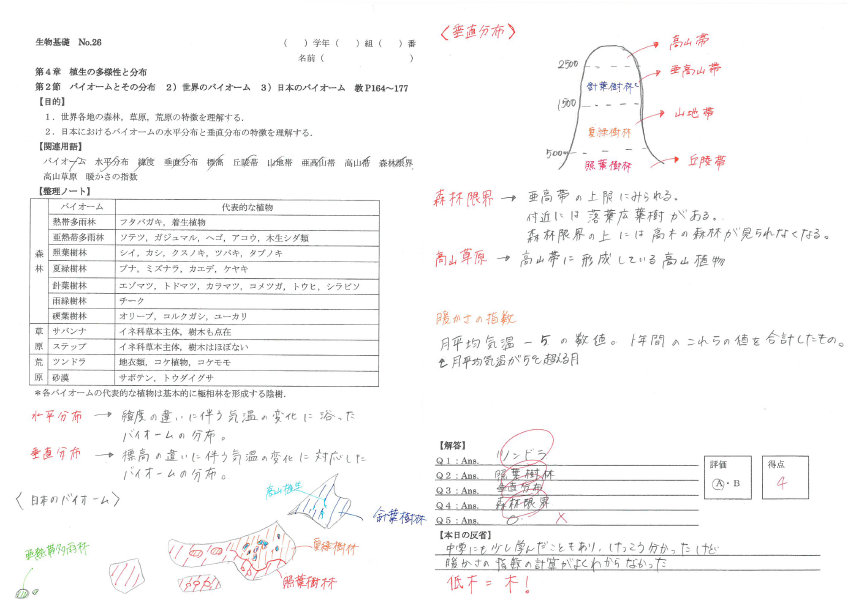 生物基礎 No.26
( )学年( )組( )番
名前( )
第4章 植生の多様性と分布
第2節 バイオームとその分布 2)世界のバイオーム 3)日本のバイオーム 教P164~177
【目的】
1.世界各地の森林,草原,荒原の特徴を理解する.
2.日本におけるバイオームの水平分布と垂直分布の特徴を理解する.
【関連用語】
バイオーム 水平分布 緯度 垂直分布 標高 丘陵帯 山地帯 亜高山帯 高山帯 森林限界
高山草原 暖かさの指数
【整理ノート】
バイオーム 代表的な植物
森林
熱帯多雨林 フタバガキ,着生植物
亜熱帯多雨林 ソテツ,ガジュマル,ヘゴ,アコウ,木生シダ類
照葉樹林 シイ,カシ,クスノキ,ツバキ,タブノキ
夏緑樹林 ブナ,ミズナラ,カエデ,ケヤキ
針葉樹林 エゾマツ,トドマツ,カラマツ,コメツガ,トウヒ,シラビソ
雨緑樹林 チーク
硬葉樹林 オリーブ,コルクガシ,ユーカリ
草原
サバンナ イネ科草本主体,樹木も点在
ステップ イネ科草本主体,樹木はほぼない
荒原
ツンドラ 地衣類,コケ植物,コケモモ
砂漠 サボテン,トウダイグサ
*各バイオームの代表的な植物は基本的に極相林を形成する陰樹.
水平分布 → 緯度の違いに伴う気温の変化に沿った
バイオームの分布。
垂直分布 → 標高の違いに伴う気温の変化に対応した
バイオームの分布。
〈日本のバイオーム〉
高山植生
針葉樹林
夏緑樹林
照葉樹林
亜熱帯多雨林
〈垂直分布〉
高山帯
2500
亜高山帯
針葉樹林
1500
山地帯
夏緑樹林
500m
丘陵帯
照葉樹林
森林限界 → 亜高帯の上限にみられる。
付近には落葉広葉樹がある。
森林限界の上には高木の森林が見られなくなる。
高山草原 → 高山帯に形成している高山植物
暖かさの指数
月平均気温 - 5 の数値。1年間のこれらの値を合計したもの。
月平均気温が5℃を超える月
【解答】
Q1:Ans. ツンドラ
Q2:Ans. 照葉樹林
Q3:Ans. 垂直分布
Q4:Ans. 森林限界
Q5:Ans.
評価
A・B
得点
4
【本日の反省】
中学にも少し学んだこともあり、けっこう分かったけど
暖かさの指数の計算がよくわからなかった
低木=木!